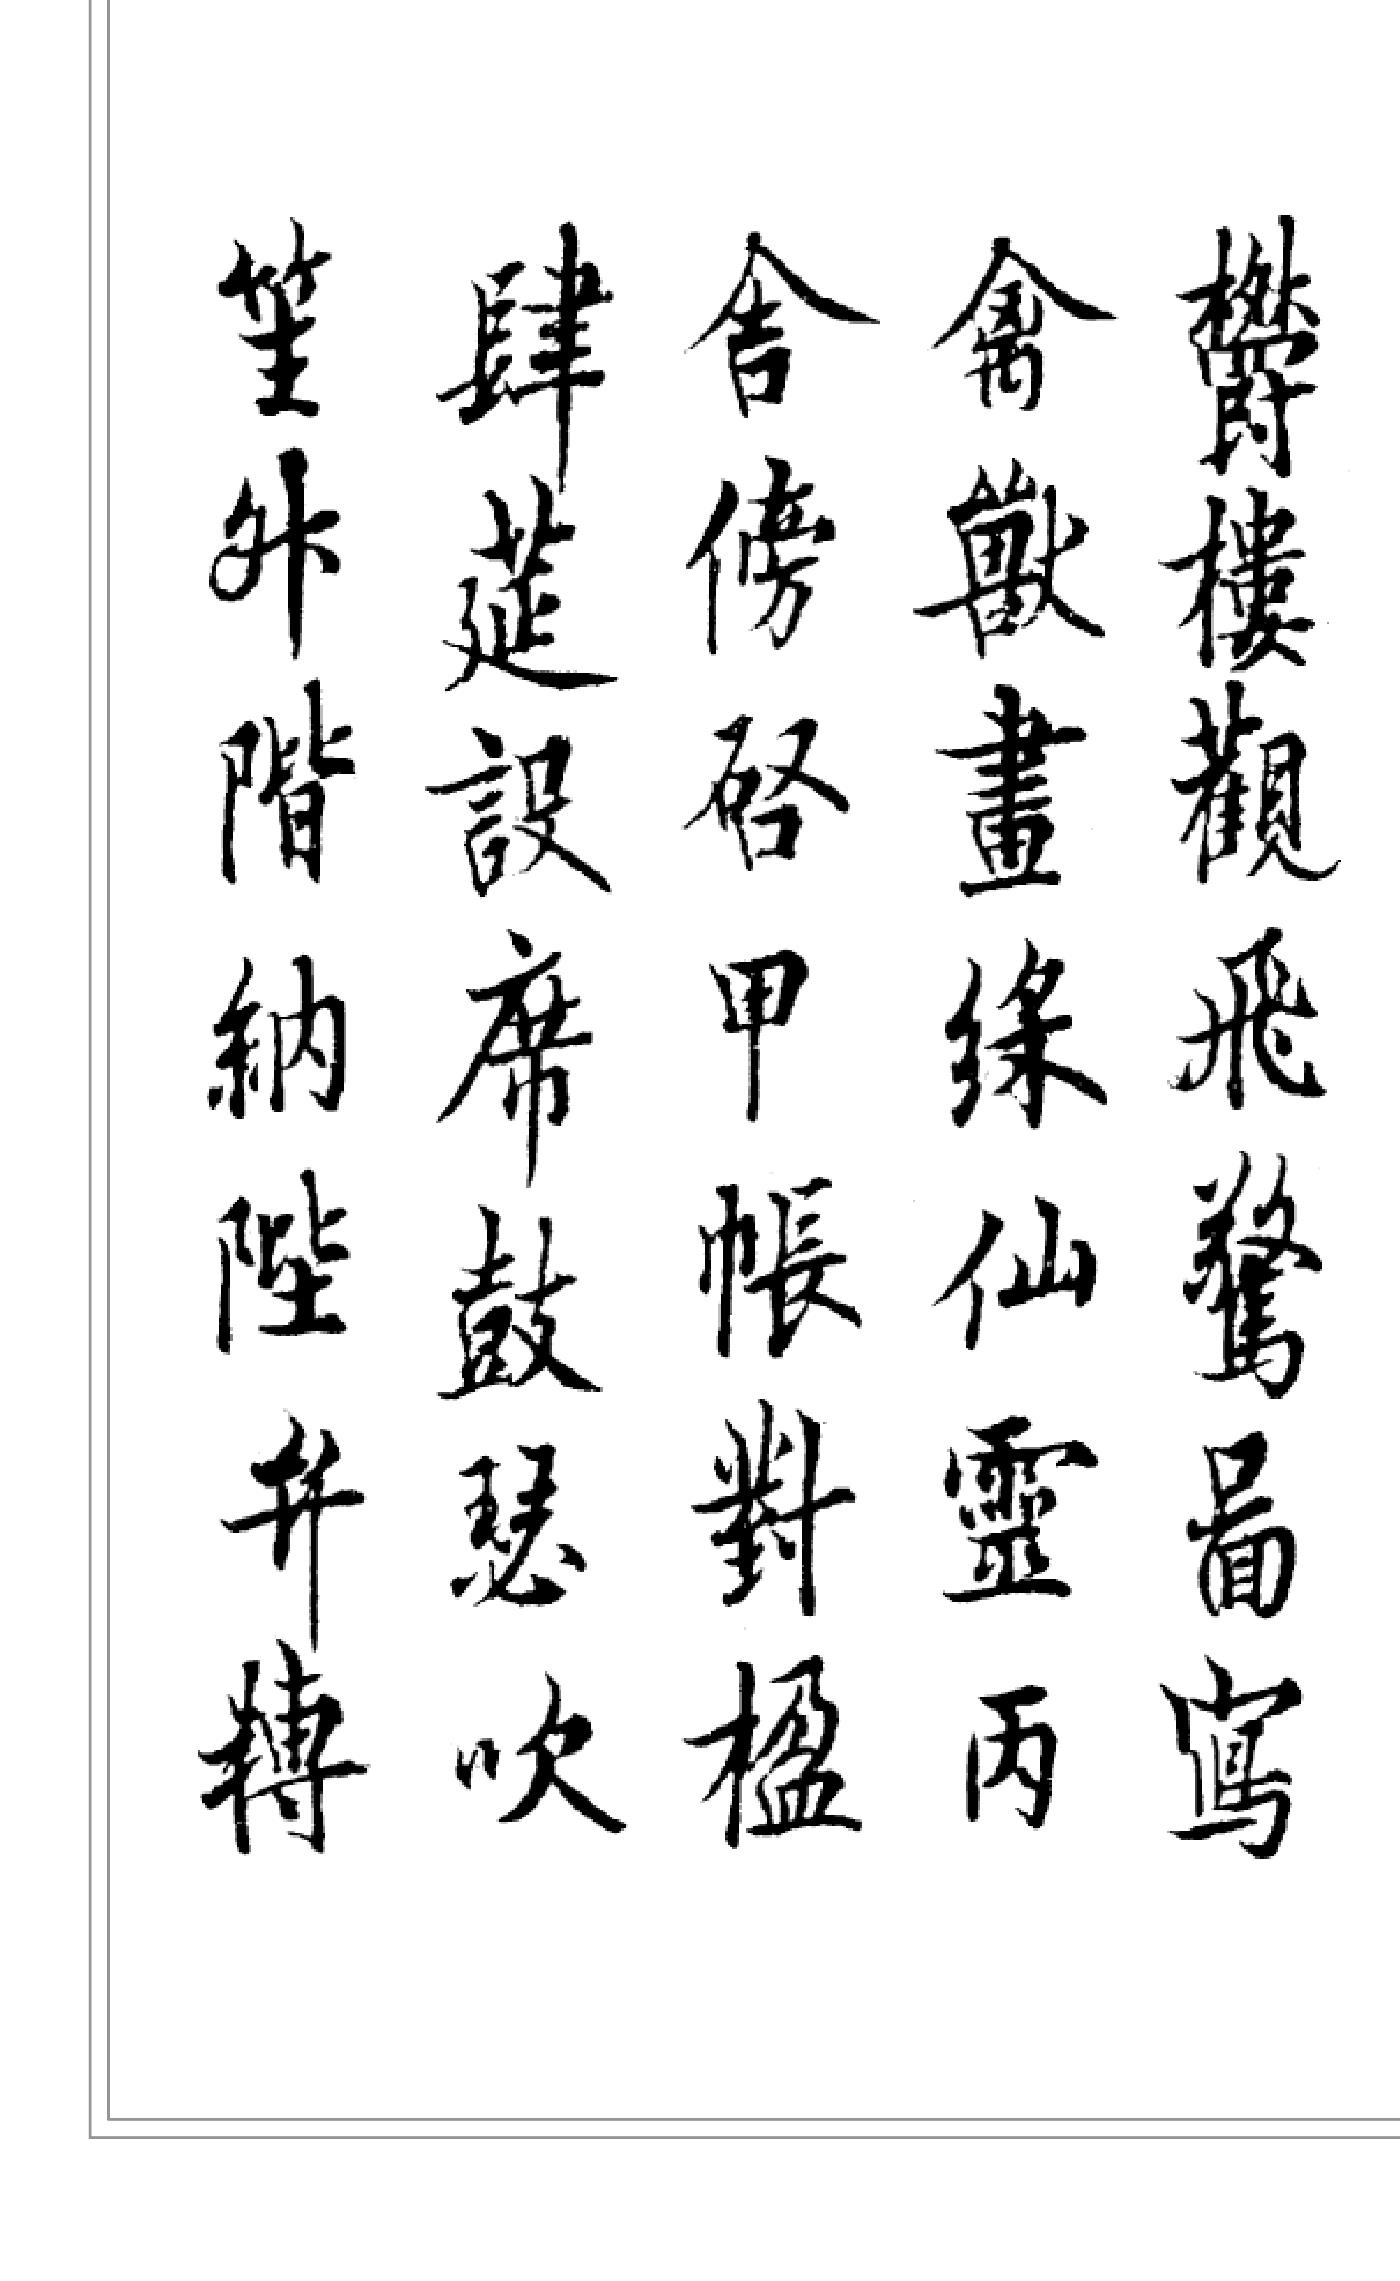 欝樓觀飛驚啚寫
禽獸畫綵仙靈丙
舍傍啓甲帳對楹
肆莚設席鼓瑟吹
笙升階納陛弁轉